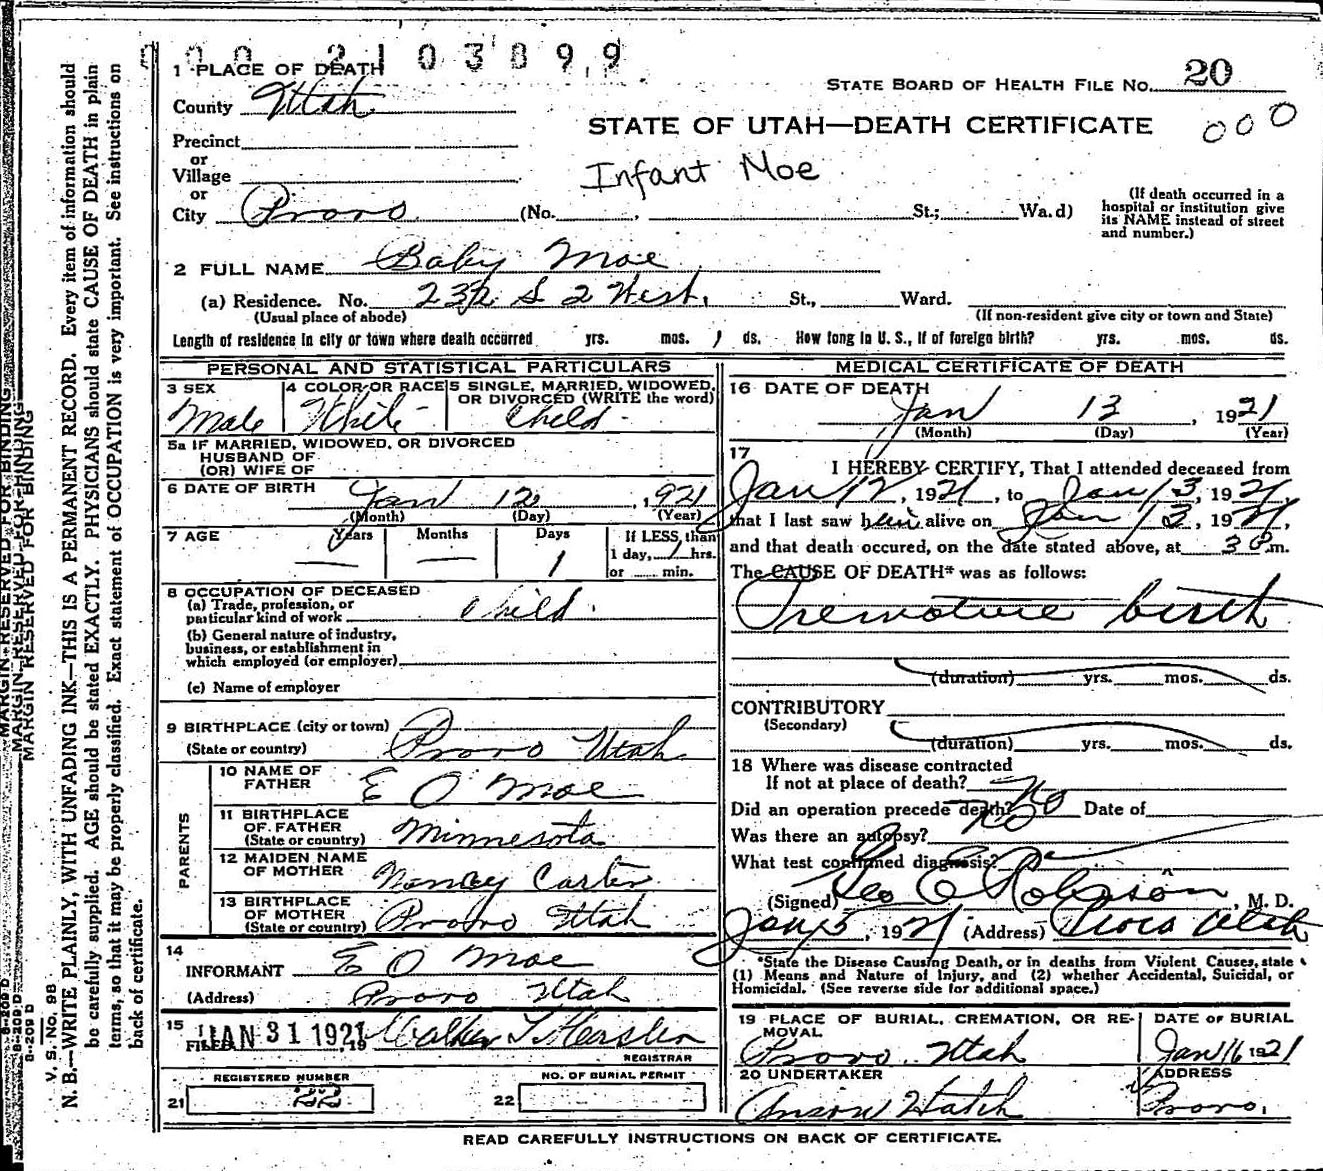 2103899
1 PLACE OF DEATH
STATE BOARD OF HEALTH FILE No. 20
County Utah
STATE OF UTAH—DEATH CERTIFICATE
000
Precinct
or
Village
Infant Moe
or
City Provo (No. , St.; Wa.d)
(If death occurred in a
hospital or institution give
its NAME instead of street
and number.)
2 FULL NAME Baby Moe
(a) Residence. No. 232 S 2 West. St., Ward.
(Usual place of abode)
(If non-resident give city or town and State)
Length of residence in city or town where death occurred yrs. mos. 1 ds. How long in U. S., if of foreign birth? yrs. mos. ds.
PERSONAL AND STATISTICAL PARTICULARS
3 SEX
Male
4 COLOR OR RACE
White
5 SINGLE, MARRIED, WIDOWED,
OR DIVORCED (WRITE the word)
Child
5a IF MARRIED, WIDOWED, OR DIVORCED
HUSBAND OF
(OR) WIFE OF
6 DATE OF BIRTH Jan 12 , 1921
(Month) (Day) (Year)
7 AGE Years Months Days If LESS than
— — 1 1 day, 1 hrs.
or min.
8 OCCUPATION OF DECEASED
(a) Trade, profession, or
particular kind of work child.
(b) General nature of industry,
business, or establishment in
which employed (or employer)
(c) Name of employer
9 BIRTHPLACE (city or town)
(State or country) Provo Utah
PARENTS
10 NAME OF
FATHER E O Moe
11 BIRTHPLACE
OF FATHER
(State or country) Minnesota
12 MAIDEN NAME
OF MOTHER Nancy Carter
13 BIRTHPLACE
OF MOTHER
(State or country) Provo Utah
14
INFORMANT E O Moe
(Address) Provo Utah
15
FILED JAN 31 1921, 19
REGISTRAR
REGISTERED NUMBER
21 22
NO. OF BURIAL PERMIT
22
MEDICAL CERTIFICATE OF DEATH
16 DATE OF DEATH
Jan 13 , 1921
(Month) (Day) (Year)
17
I HEREBY CERTIFY, That I attended deceased from
Jan 12, 1921, to Jan 13, 1921,
that I last saw him alive on Jan 13, 1921,
and that death occured, on the date stated above, at m.
The CAUSE OF DEATH* was as follows:
Premature birth
(duration) yrs. mos. ds.
CONTRIBUTORY
(Secondary)
(duration) yrs. mos. ds.
18 Where was disease contracted
If not at place of death?
Did an operation precede death? No Date of
Was there an autopsy? No
What test confirmed diagnosis?
(Signed) Geo E Robison, M. D.
Jan 15, 1921 (Address) Provo Utah
*State the Disease Causing Death, or in deaths from Violent Causes, state
(1) Means and Nature of Injury, and (2) whether Accidental, Suicidal, or
Homicidal. (See reverse side for additional space.)
19 PLACE OF BURIAL, CREMATION, OR RE-
MOVAL
Provo, Utah
DATE OF BURIAL
Jan 16 1921
20 UNDERTAKER
Anson Hatch
ADDRESS
Provo.
READ CAREFULLY INSTRUCTIONS ON BACK OF CERTIFICATE.
MARGIN RESERVED FOR BINDING
MARGIN RESERVED FOR BINDING
MARGIN RESERVED FOR BINDING
8-209 D
8-209 D
8-209 D
V. S. No. 98
N. B.—WRITE PLAINLY, WITH UNFADING INK—THIS IS A PERMANENT RECORD. Every item of information should
be carefully supplied. AGE should be stated EXACTLY. PHYSICIANS should state CAUSE OF DEATH in plain
terms, so that it may be properly classified. Exact statement of OCCUPATION is very important. See instructions on
back of certificate.